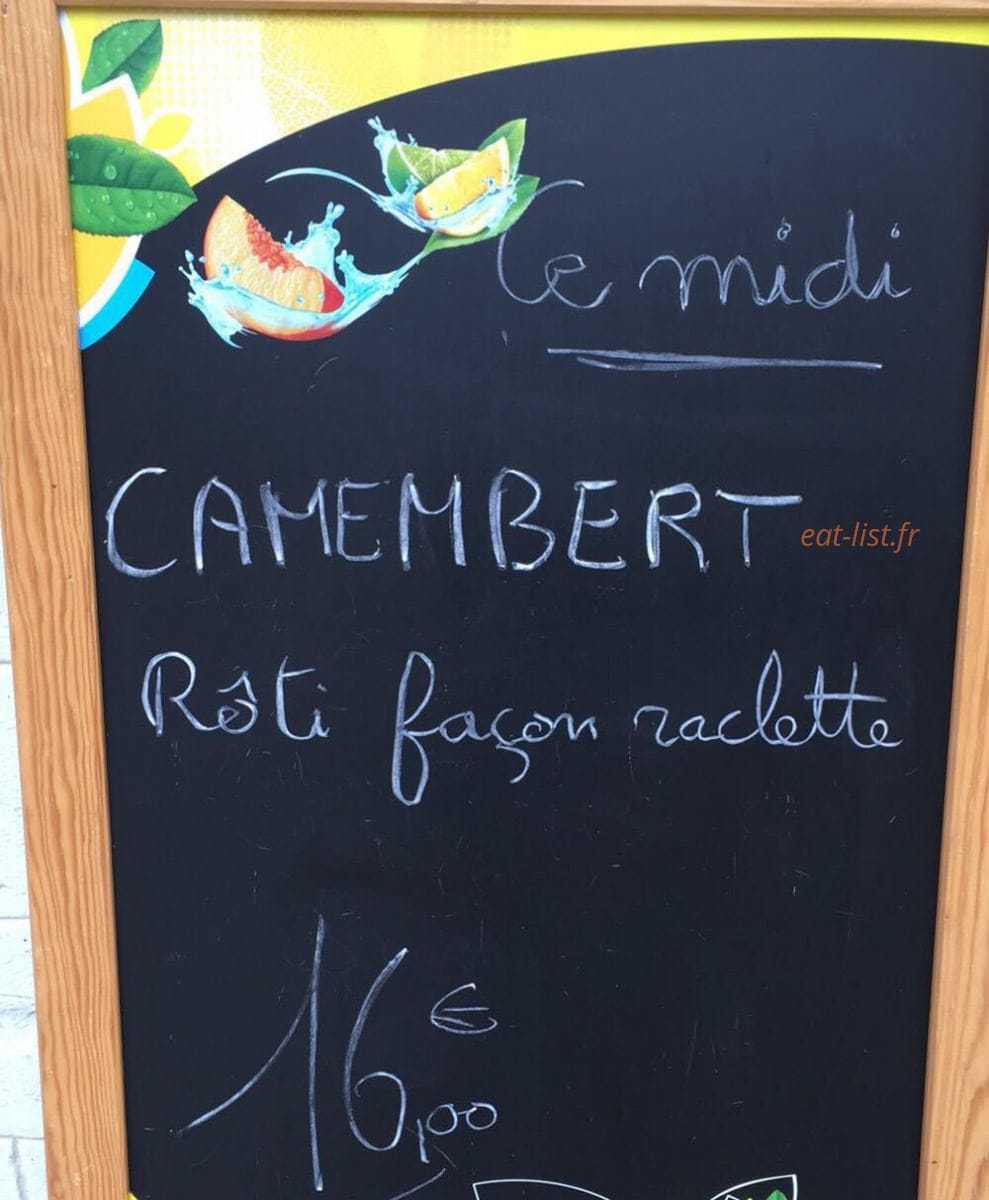 Ce midi
CAMEMBERT
eat-list.fr
Rôti façon raclette
16,00 €